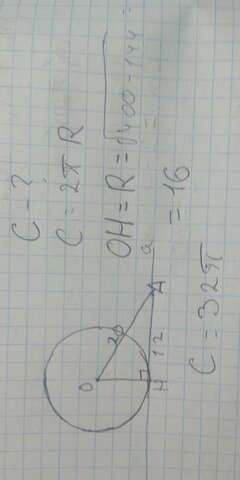 C - ?
C = 2πR
OH = R = √400-144 =
= 16
a
O
20
A
12
H
C = 32π